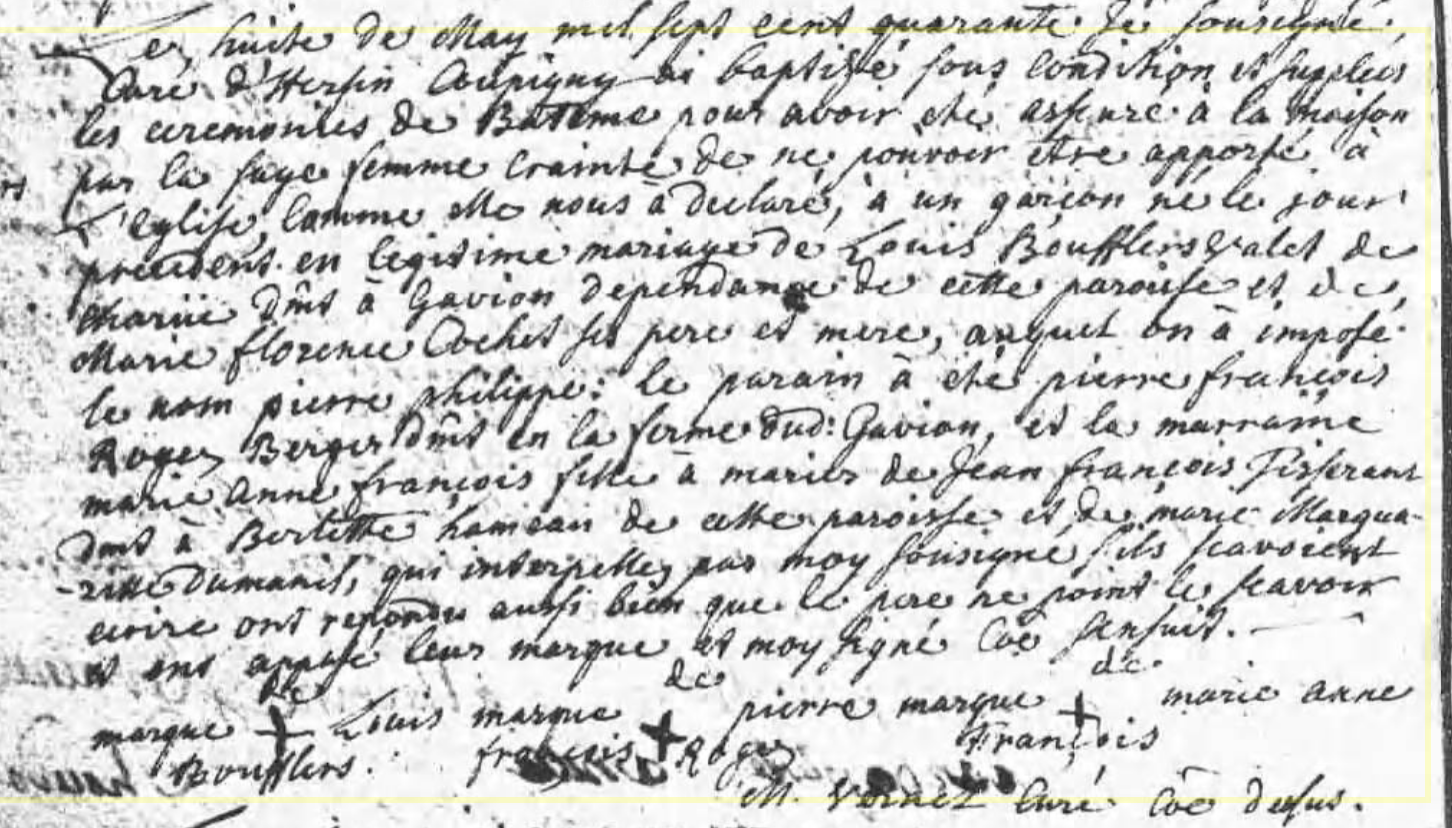 Le huite de May mil sept cent quarante Je sousigné
Curé d'Hersin Coupigny ai baptizé sous condition et supplees
les ceremonies de Batême pour avoir eté assuré à la maison
par la sage femme crainte de ne pouvoir être apporté à
L'eglise, comme elle nous à declaré, à un garçon né le jour
precedent en legitime mariage de Louis Boufflers valet de
charüe dmt à Gavion dependance de cette paroisse et de
Marie florence Cochet ses pere et mere, auquel on à imposé
le nom pierre philippe: le parain à eté pierre françois
Roger Berger dmt en la ferme dud: Gavion, et la marraine
marie Anne françois fille à marier de Jean françois Tisserant
dmt à Berlette hameau de cette paroisse et de marie Margua-
-ritte Dumanil, qui interpellez par moy sousigné s'ils scavoient
ecrire ont repondu aussi bien que le pere ne point le scavoir
et ont apposé leur marque et moy signé Coe s'ensuit.
de de de
marque + Louis marque + pierre marque + marie Anne
Boufflers. françois Roger François
M. Curé Coe desus.